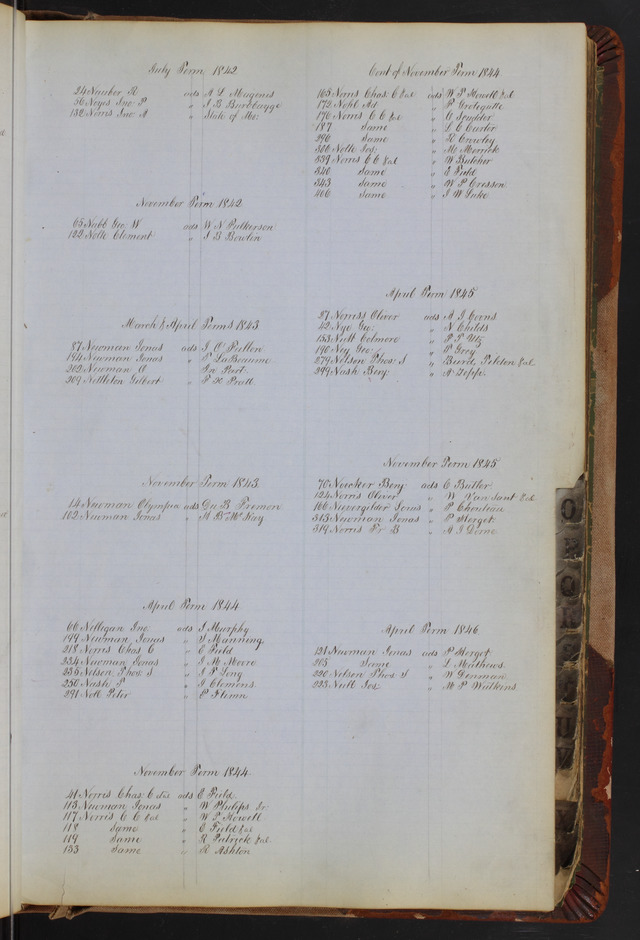 July Term 1842
24 Nauber R ads A L Magenis
56 Noyes Jno. P " J B Burbbayge
132 Norris Jno. A " State of Mo.
November Term 1842
65 Nabb Geo. W ads W N Fulkerson
122 Nolte Clement " J B Bowlin
March & April Terms 1843
87 Newman Jonas ads J C
194 Newman Jonas " L LaBeaume
202 Newman
209 Nettleton Gilbert " P K Pratt
November Term 1843
14 Newman Olympia ads Geo B Fremon
102 Newman Jonas " A B McKey
April Term 1844
66 Nelligan Jno. ads J Murphy
199 Newman Jonas " S Manning
218 Norris Chas. C " E Field
234 Newman Jonas " J M Moore
235 Nelson Thos. S " J P Long
250 Nash T " J Clemens
291 Noll Peter " P Flemn
November Term 1844
41 Norris Chas. C &al ads E Field
113 Newman Jonas " W Philips Sr.
117 Norris C C &al " W P Howell
118 Same " E Field &al
119 Same " R Patrick &al
133 Same " R Ashton
Cont of November Term 1844
165 Norris Chas. C &al ads W P Howell &al
172 Nobl Ad " P Grotegutte
176 Norris C C &al " C Scudder
187 Same " L C Custer
296 Same " H Crowley
306 Nolte Jos. " Mc Merrick
339 Norris C C &al " W Butcher
340 Same " E Field
343 Same " W P Cresson
406 Same " J W Luke
April Term 1845
27 Norriss Oliver ads A J Coons
42 Nye Geo. " N Childs
153 Nutt Colmore " P T Utz
190 Ney Geo. " C Grey
279 Nelson Thos. S " Burd Tilden &al
299 Nash Benj " A Zepp.
November Term 1845
70 Noicker Benj ads C Butler
124 Norris Oliver " W Vansant &al
166 Nievergilder Jonas " P Chouteau
313 Newman Jonas " P Horget
319 Norris Fr B " A J Dorne
April Term 1846
121 Newman Jonas ads P Horget
205 Same " L Mathews
220 Nelson Thos. S " W Denman
223 Null Jos. " M P Watkins
O